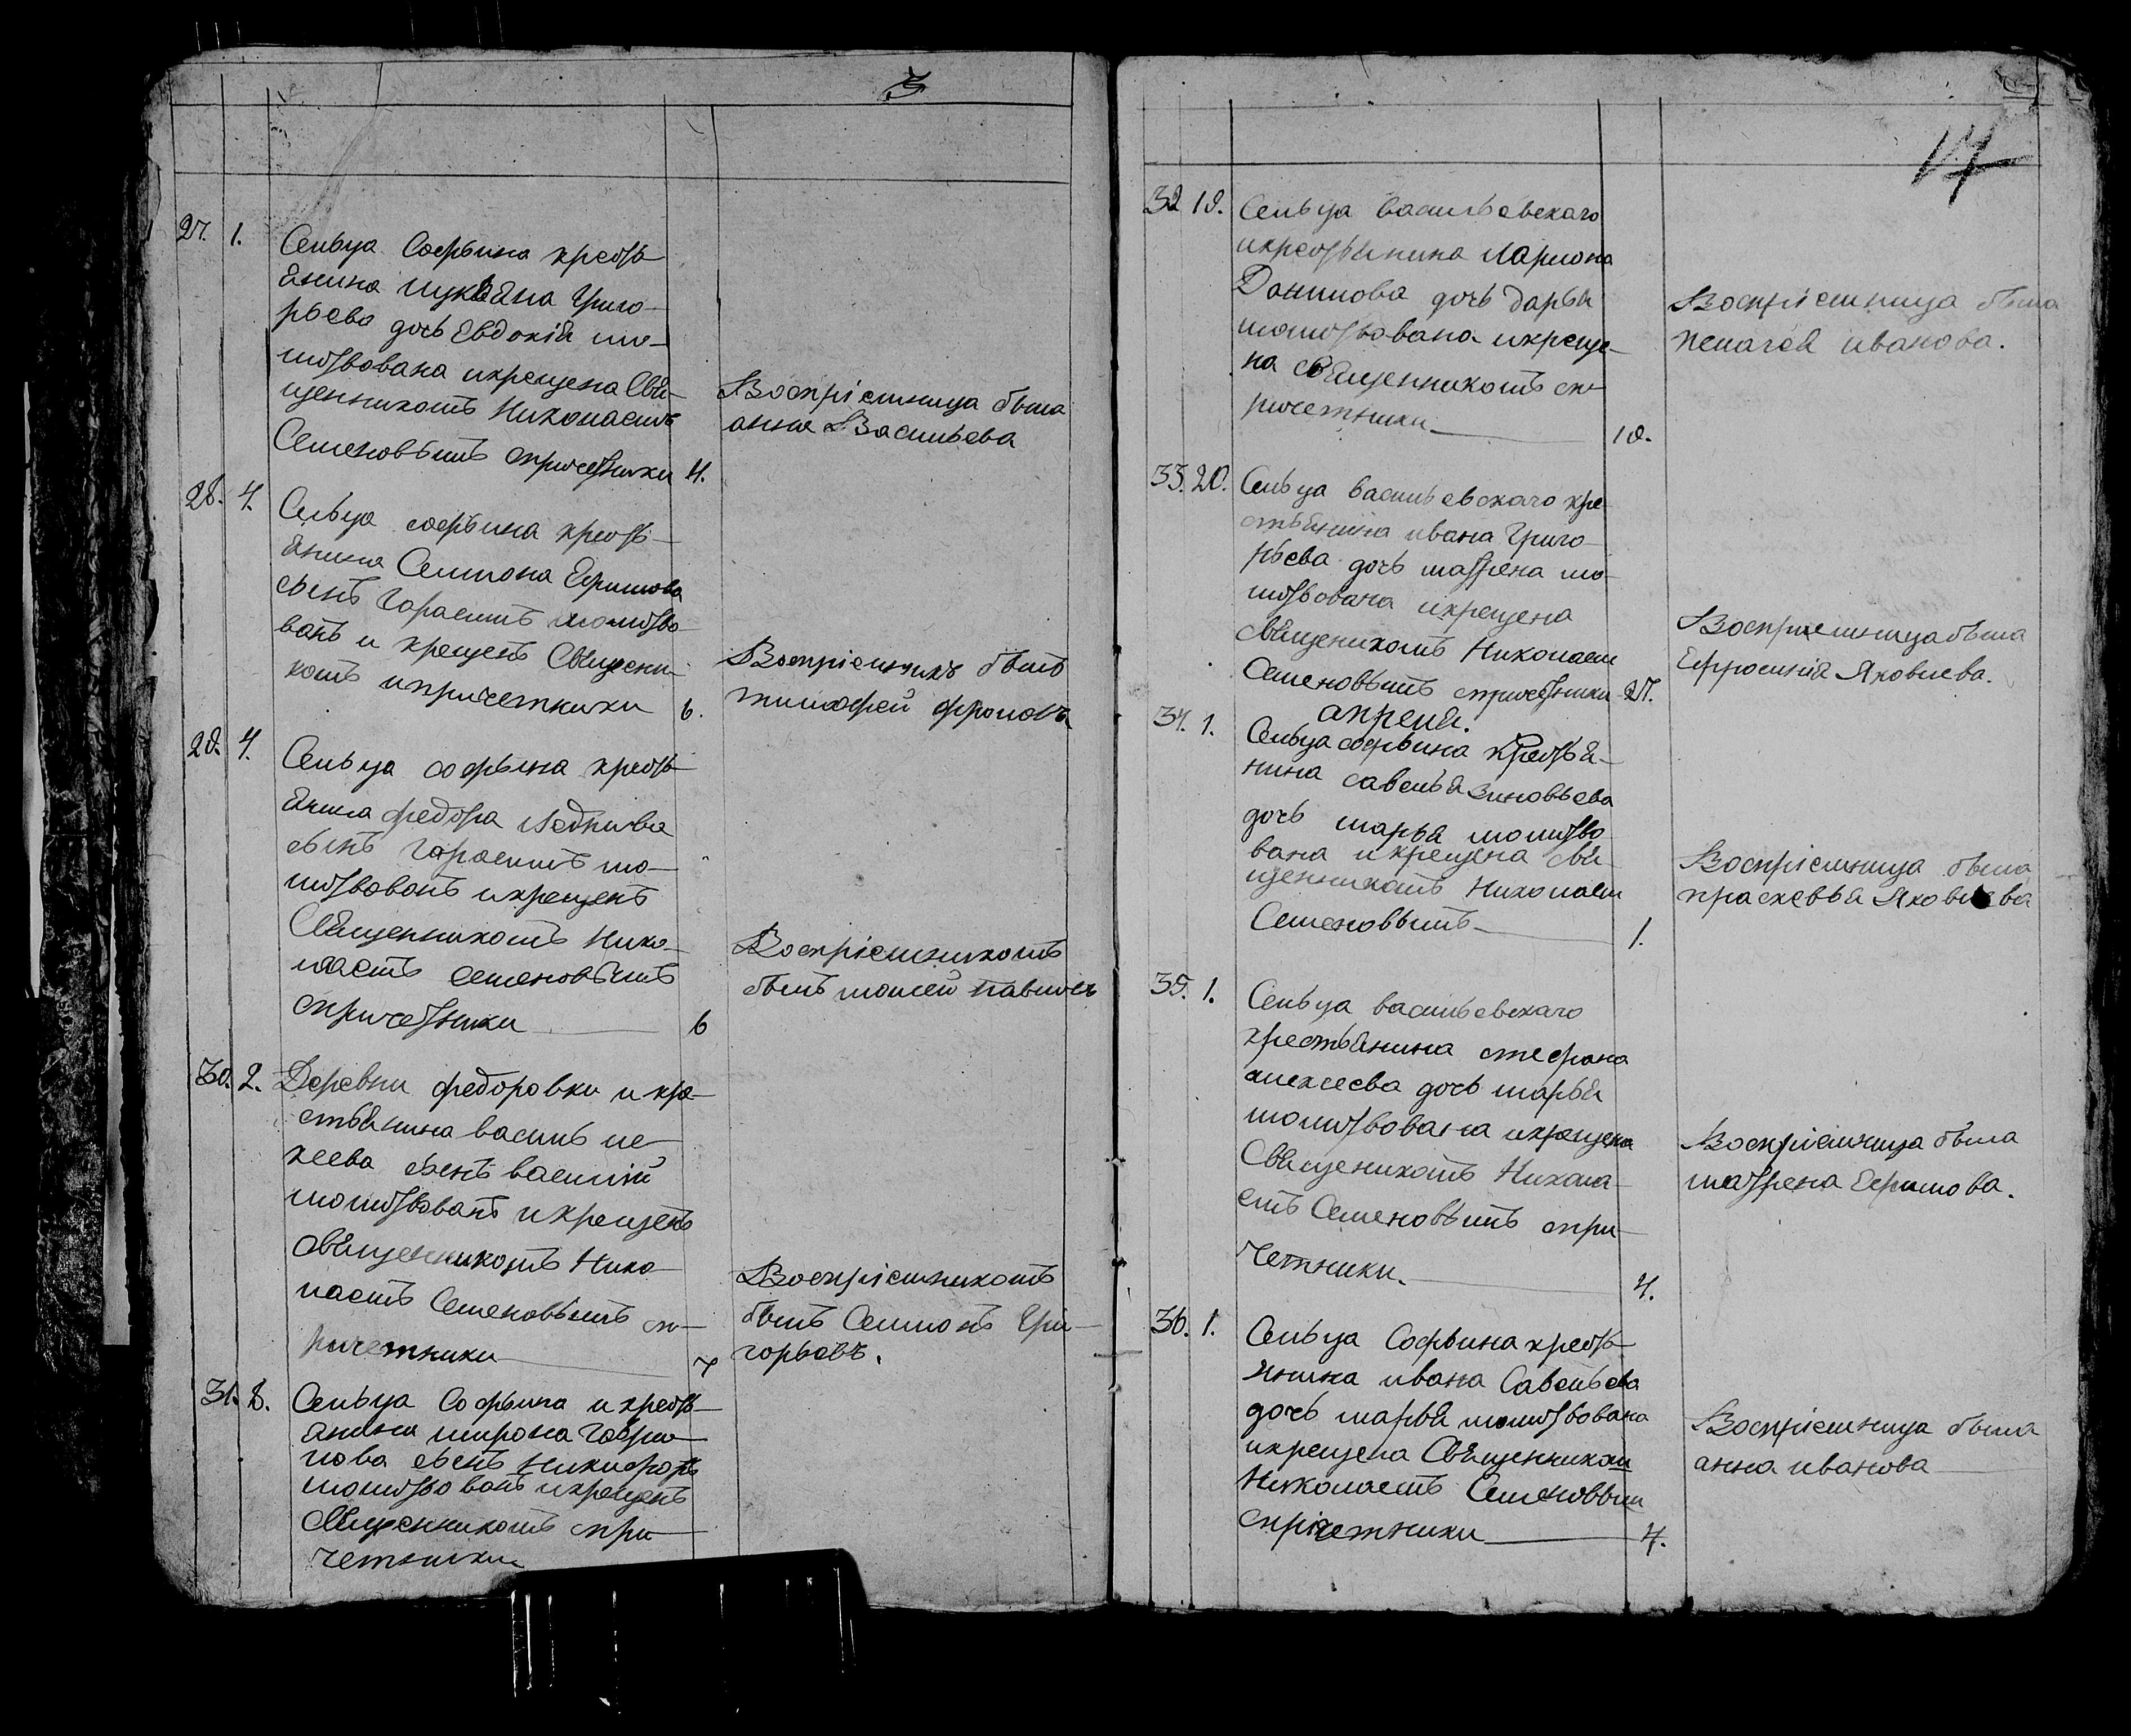 3
27. 1. Сельца Софьина крестья-
янина Лукъяна Григо-
рьева дочь Евдокия мо-
литвована и крещена Свя-
щенникомъ Николаемъ
Семеновымъ спричетники 4.
Восприемница была
анна Васильева
28. 4. Сельца софьина кресть-
янина Семиона Ефимова
сынъ Гарасимъ молитво-
ванъ и крещенъ Священи-
комъ и причетники 6.
Восприемникъ былъ
тимофей фроловъ
29. 4. Сельца софьина кресть-
янина федора
сынъ Гарасимъ мо-
литвованъ и крещенъ
Священникомъ Нико-
лаемъ семеновымъ
спричетники 6
Восприемникомъ
былъ моисей павловъ
30. 2. Деревни федоровки и кре-
стьянина василь
сынъ василий
молитвованъ и крещенъ
священникомъ Нико-
лаемъ Семеновымъ сп-
ричетники 7
Восприемникомъ
былъ Семионъ Гри-
горьевъ.
31. 8. Сельца Софьина и кресть-
янина мирона Гаври-
лова сынъ Никифоръ
молитвованъ и крещенъ
Священникомъ спри-
четники
17
32 19. Сельца васильевскаго
и крестьянина Лариона
Данилова дочь дарья
молитвована и креще-
на священникомъ сп-
ричетники 19.
Восприемница была
пелагея иванова.
33. 20. Сельца васильевскаго кре-
стьянина ивана Григо-
рьева дочь матрена мо-
литвована и крещена
священикомъ Николаем
Семеновымъ спричетники 27.
Восприемница была
Ефросиния Яковлева.
апреля.
34. 1. Сельца софьина крестья-
нина савелья зиновьева
дочь марья молитво
вана и крещена свя-
щенникомъ Николаем
Семеновымъ 1.
Восприемница была
прасковья Яковлева
35. 1. Сельца васильевскаго
крестьянина стефана
алексеева дочь марья
молитвована и крещена
Священикомъ Никола-
емъ Семеновымъ спри-
четники. 4.
Восприемница была
матрена Ефимова.
36. 1. Сельца Софьина кресть-
янина ивана Савельева
дочь марья молитвована
и крещена Священником
Николаемъ Семеновым
спричетники 4.
Восприемница была
анна иванова